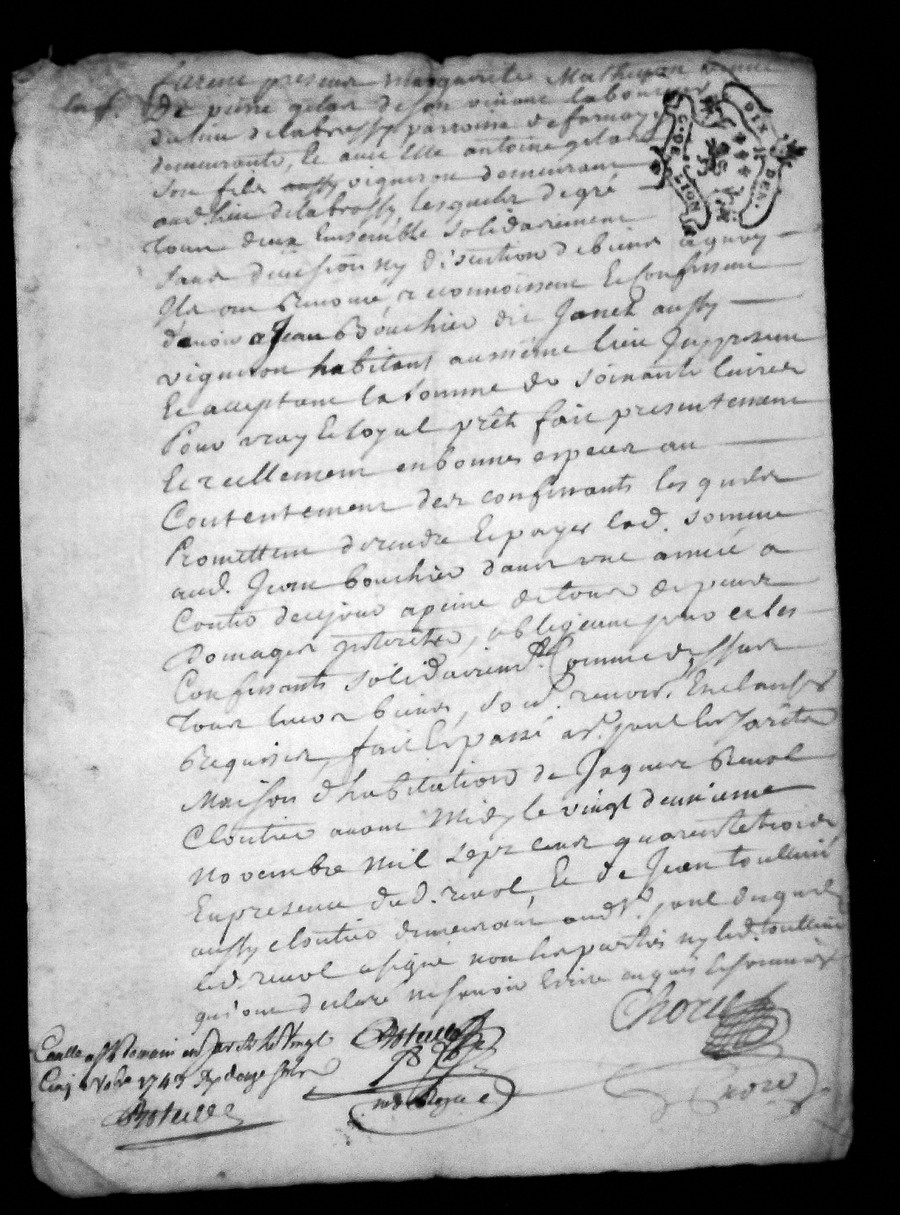 furent presens Marguerite Mathevon veuve
De pierre gelas de son vivant laboureur
du lieu de labrossy parroisse de farnay
demeurante, Et avec Elle antoine gelas
son fils aussy vigneron demeurant
aud. lieu delabrossy lesquels de gré
tous deux Ensemble solidairement
sans division ny discution de biens aquoy
Ils ont Renoncé reconnoissent Et Confessent
devoir a Jean Bouchier dit Janet aussy
vigneron habitant aumême lieu Icy present
Et acceptant la somme de soixante livres
Pour vray Et loyal prêt fait presentement
Et reellement en bonnes especes au
Contentement des confessants lesquels
Promettent de rendre Et payer lad. somme
aud. Jean bouchier dans une année a
Conter dece jour a peine de tous depens
Domages interêts, obligeant pour ce les
Confessants solidairemt. Comme dessus
tous leurs biens, soum. renonc. Et clauses
Requises, fait Et passé a st. paul En Jarêts
Maison d'habitation de Jaques Revol
Cloutier avant Midy le vingt deuxieme
Novembre Mil sept cent quarante trois
En presence dud. revol Et de Jean toulleux
aussy cloutier demeurant aud. st. paul desquels
led. revol a signé non les parties ny led. toulleux
qui ont declaré ne savoir Ecrire enquis Et sommés
Chorel
Controllé a st Romain en jarêts le vingt
Cinq 9bre 1743 Reçu douze sols
G. DE LION
DIX DEN.